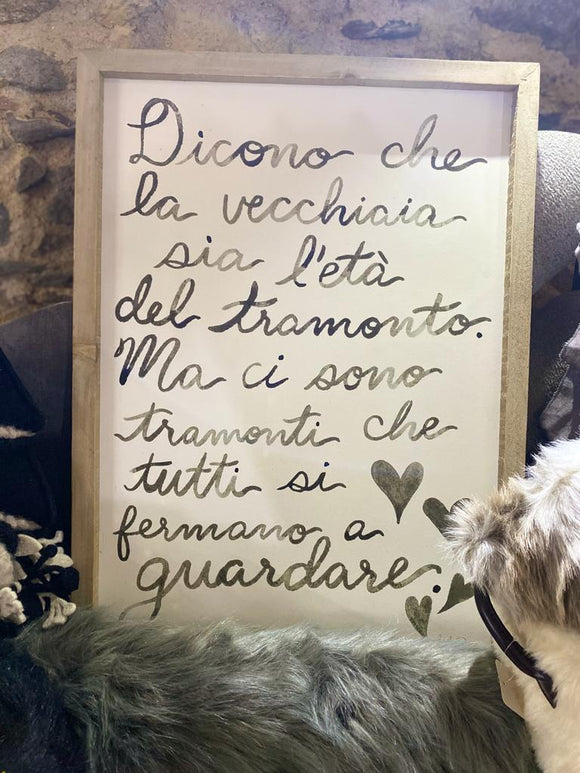 Dicono che
la vecchiaia
sia l'età
del tramonto.
Ma ci sono
tramonti che
tutti si
fermano a
guardare.